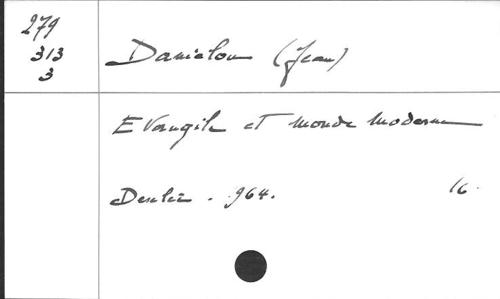 279
313
3
Danielou (Jean)
Evangile et monde moderne
Desclée . 964.
16